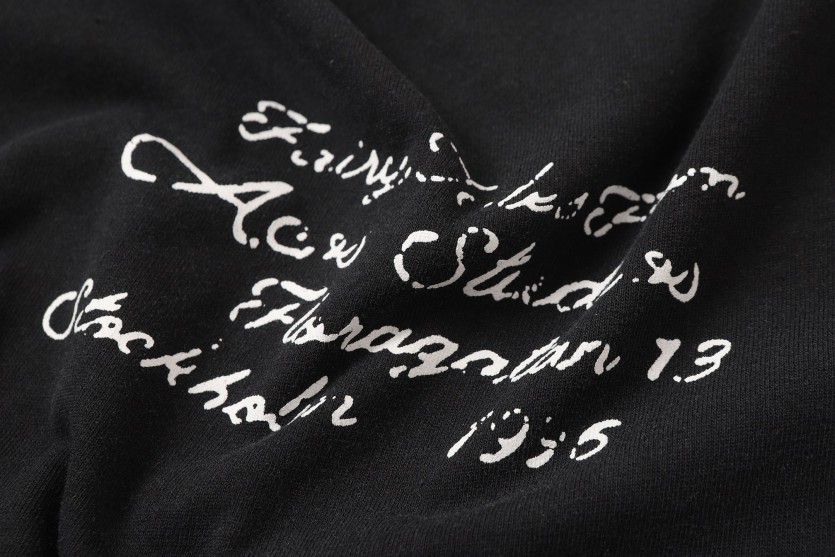 Fairy
Acne Studios
Floragatan 13
Stockholm 1996